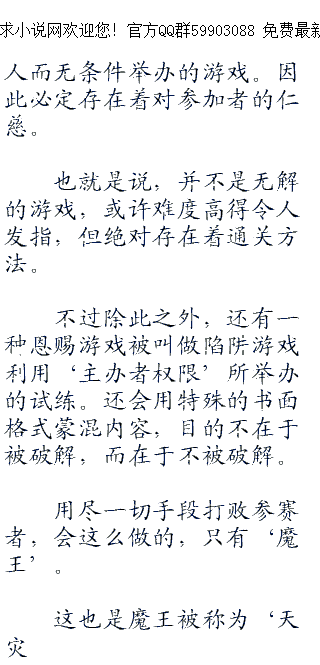 求小说网欢迎您! 官方QQ群59903088 免费最新
人而无条件举办的游戏。因
此必定存在着对参加者的仁
慈。
也就是说，并不是无解
的游戏，或许难度高得令人
发指，但绝对存在着通关方
法。
不过除此之外，还有一
种恩赐游戏被叫做陷阱游戏
利用‘主办者权限’所举办
的试练。还会用特殊的书面
格式蒙混内容，目的不在于
被破解，而在于不被破解。
用尽一切手段打败参赛
者，会这么做的，只有‘魔
王’。
这也是魔王被称为‘天
灾